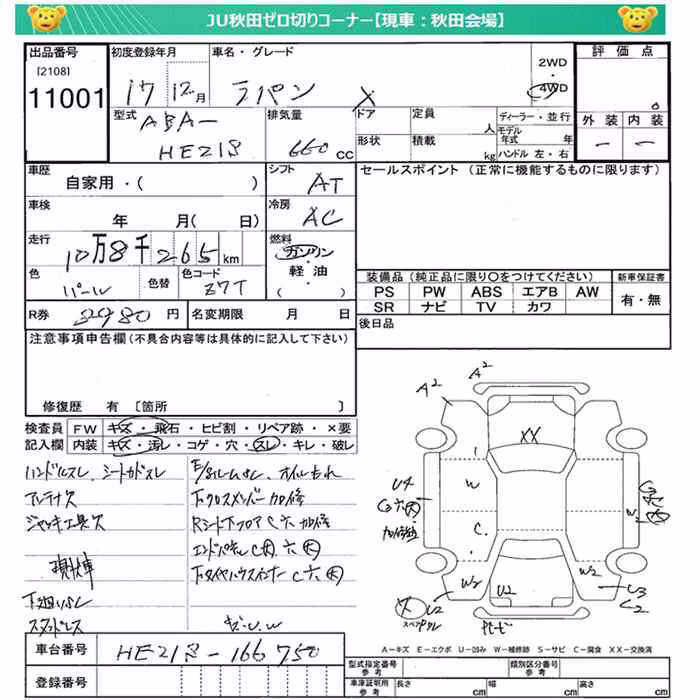 JU秋田ゼロ切りコーナー【現車：秋田会場】
出品番号
[2108]
11001
初度登録年月
17 12月
車名・グレード
ラパン X
2WD
4WD
評価点
外装 内装
ー ー
型式
ABA-
HE21S
排気量
660 cc
ドア
形状
定員
人
積載
kg
ディーラー・並行
モデル年式 年
ハンドル 左・右
車歴
自家用・( )
シフト
AT
セールスポイント (正常に機能するものに限ります)
車検
年 月( 日)
冷房
AC
走行
10万8千265km
燃料
ガソリン
・
軽油
・
( )
色
パール
色替
色コード
Z7T
装備品(純正品に限り○をつけてください)
新車保証書
PS PW ABS エアB AW
SR ナビ TV カワ
有・無
R券
円
名変期限 月 日
後日品
注意事項申告欄(不具合内容等は具体的に記入して下さい)
修復歴 有 〔箇所 〕
検査員
記入欄
FW キズ・飛石・ヒビ割・リペア跡・×要
内装 キズ・汚レ・コゲ・穴・スレ・キレ・破レ
ハンドルスレ、シートカドスレ
アンテナ欠
ジャッキ工具欠
現状車
スタッドレス
オイルもれ
下クロスメンバー加修
Rシート下フロアC穴加修
エンドパネル
下タイヤハウスインナー
キズ・U.W
A2
A2
XX
W
C
U4
加修跡
W2
W2
U2
U2
U3
C2
スペアタイヤ
サビ
A-キズ E-エクボ U-凹み W-補修跡 S-サビ C-腐食 XX-交換済
車台番号
HE21S-166750
登録番号
型式指定番号
参考
類別区分番号
参考
車庫証明用
参考
長さ cm
幅 cm
高さ cm